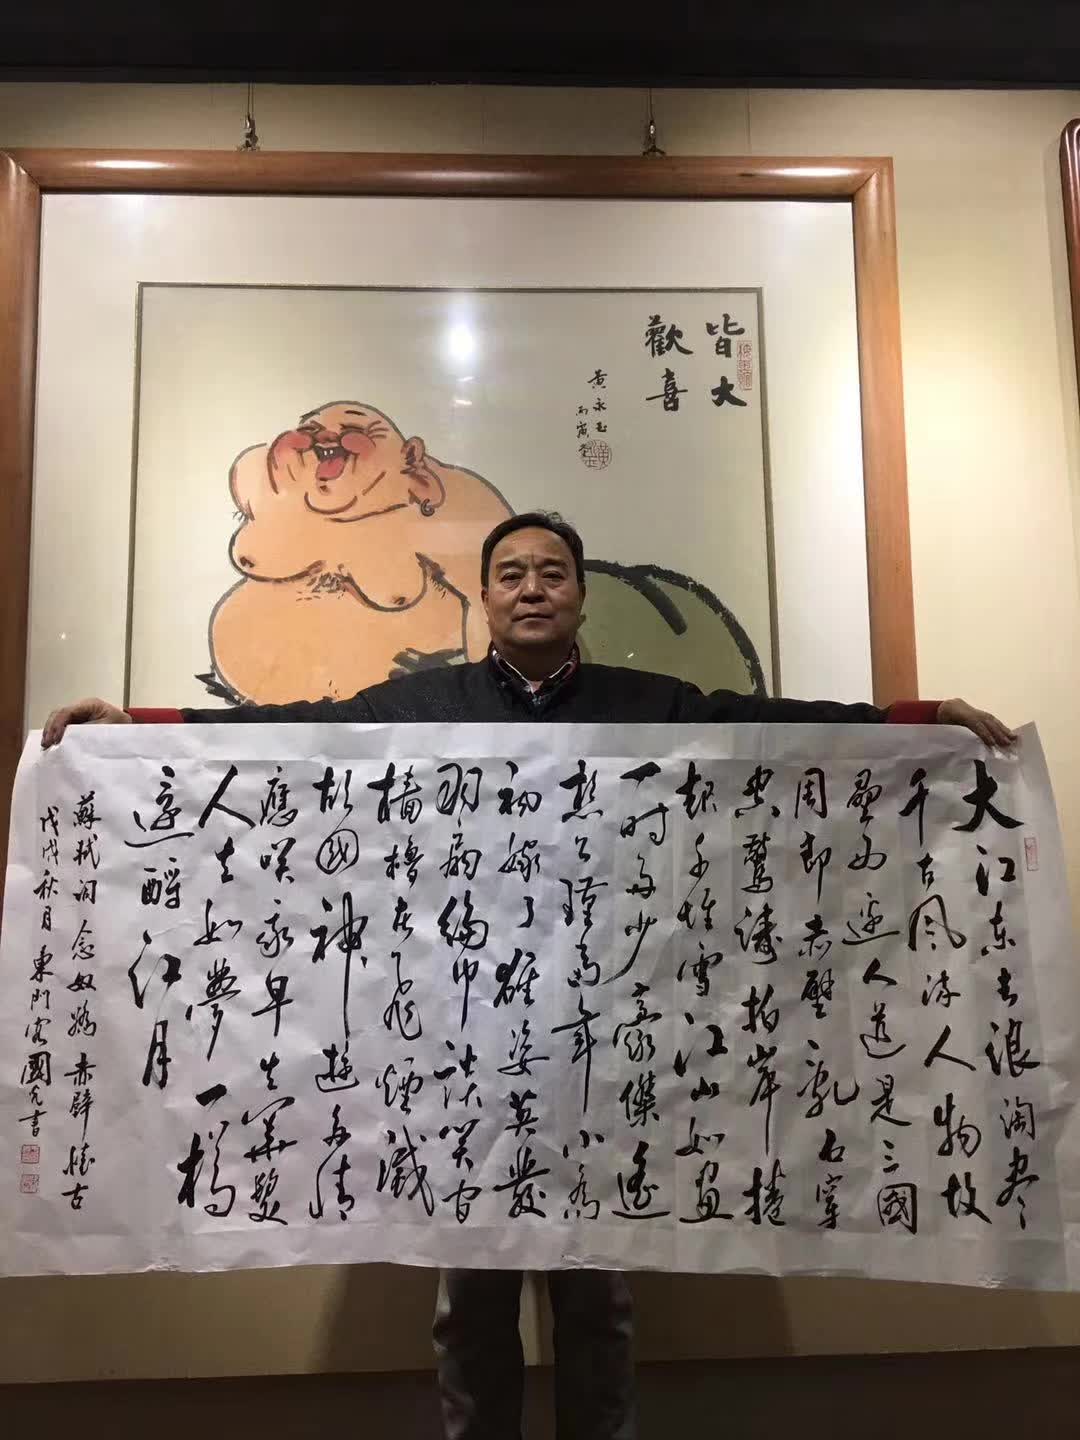 皆大
歡喜
黄永玉
丙寅
大江東去浪淘尽
千古風流人物故
壘西邊人道是三國
周郎赤壁亂石穿
空驚濤拍岸捲
起千堆雪江山如畫
一时多少豪傑遙
想公瑾當年小喬
初嫁了雄姿英發
羽扇綸巾談笑间
檣櫓灰飞煙滅
故國神遊多情
應笑我早生華髮
人生如夢一樽
還酹江月
蘇軾詞念奴嬌赤壁懷古
戊戌秋月東門客國光書